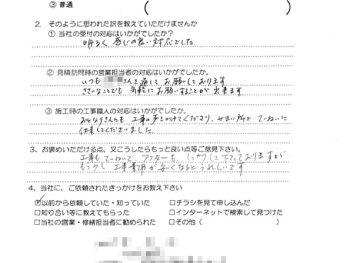 ③ 普通 ( )
2. そのように思われた訳を教えていただけませんか
① 当社の受付の対応はいかがでしたか。
明るく 感じの良い対応でした
② 見積訪問時の営業担当者の対応はいかがでしたか。
いつも さんを通して お願いしております
ささいなことでも 気軽に お願いすることが出来ます
③ 施工時の工事職人の対応はいかがでしたか。
みなさんとも 工事の声をかけてくださり、 ていねいに
仕事してくださいました
3. お褒めいただける点、又こうしたらもっと良い点等ご意見下さい。
工事も ていねいで アフターも、しっかりして下さっておりますが
もう少し 工事費用が 安くなるとうれしいです
4. 当社に、ご依頼されたきっかけをお教え下さい
☑以前から依頼していた・知っていた □チラシを見て申し込んだ
□知り合い等に教えてもらった □インターネットで検索して見つけた
□当社の営業・修繕担当者に勧められた □その他( )